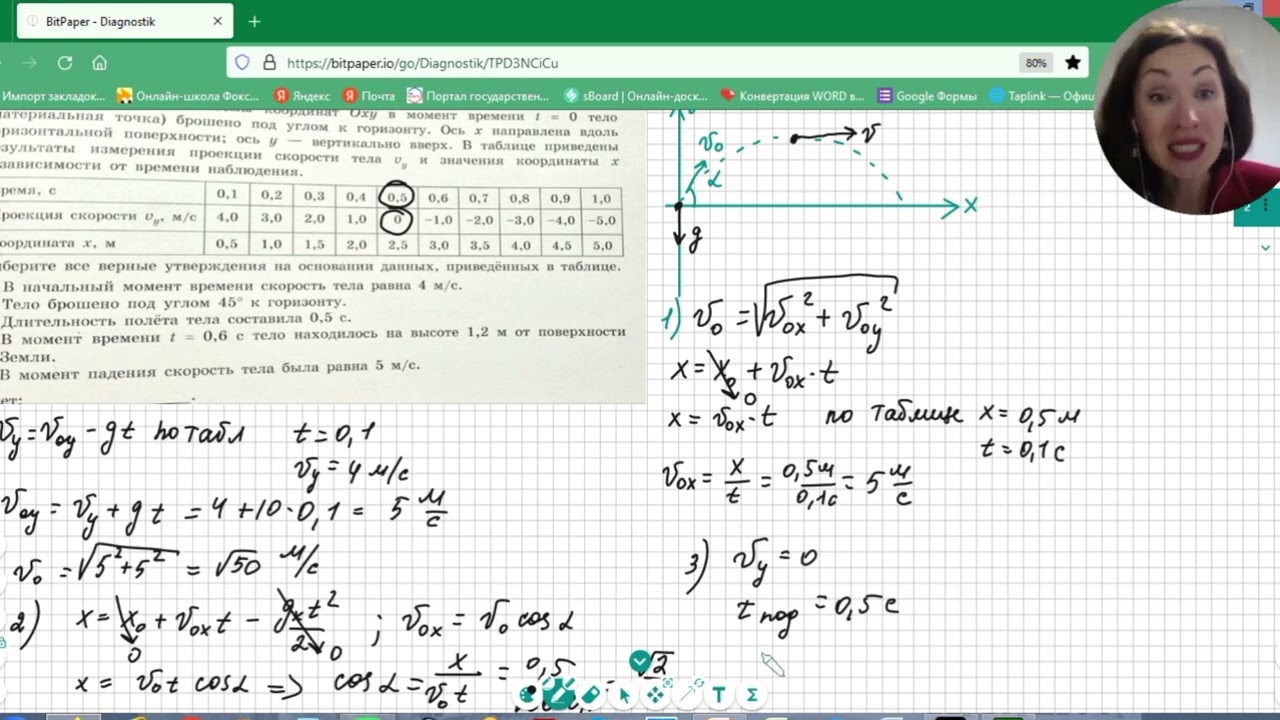 BitPaper - Diagnostik
https://bitpaper.io/go/Diagnostik/TPD3NCiCu
80%
Импорт закладок...
Онлайн-школа Фокс...
Яндекс
Почта
Портал государствен...
sBoard | Онлайн-доск...
Конвертация WORD в...
Google Формы
Taplink — Офиц
координат Oxy в момент времени t = 0 тело
атериальная точка) брошено под углом к горизонту. Ось x направлена вдоль
ризонтальной поверхности; ось y — вертикально вверх. В таблице приведены
зультаты измерения проекции скорости тела υy и значения координаты x
зависимости от времени наблюдения.
ремя, с 0,1 0,2 0,3 0,4 0,5 0,6 0,7 0,8 0,9 1,0
роекция скорости υy, м/с 4,0 3,0 2,0 1,0 0 −1,0 −2,0 −3,0 −4,0 −5,0
оордината x, м 0,5 1,0 1,5 2,0 2,5 3,0 3,5 4,0 4,5 5,0
берите все верные утверждения на основании данных, приведённых в таблице.
В начальный момент времени скорость тела равна 4 м/с.
Тело брошено под углом 45° к горизонту.
Длительность полёта тела составила 0,5 с.
В момент времени t = 0,6 с тело находилось на высоте 1,2 м от поверхности
Земли.
В момент падения скорость тела была равна 5 м/с.
ет:
υy = υ0y − gt по табл t = 0,1
υy = 4 м/с
υ0y = υy + gt = 4 + 10 · 0,1 = 5 м/с
υ0 = √5² + 5² = √50 м/с
2) x = x0 + υ0x t − gx t²/2 ; υ0x = υ0 cos α
0 0
x = υ0 t cos α => cos α = x/υ0 t = 0,5 = √2
υ0
α
υ
x
g
1) υ0 = √υ0x² + υ0y²
x = x0 + υ0x · t
0
x = υ0x · t по таблице x = 0,5 м
t = 0,1 с
υ0x = x/t = 0,5 м/0,1 с = 5 м/с
3) υy = 0
t под = 0,5 с
T
Σ
2